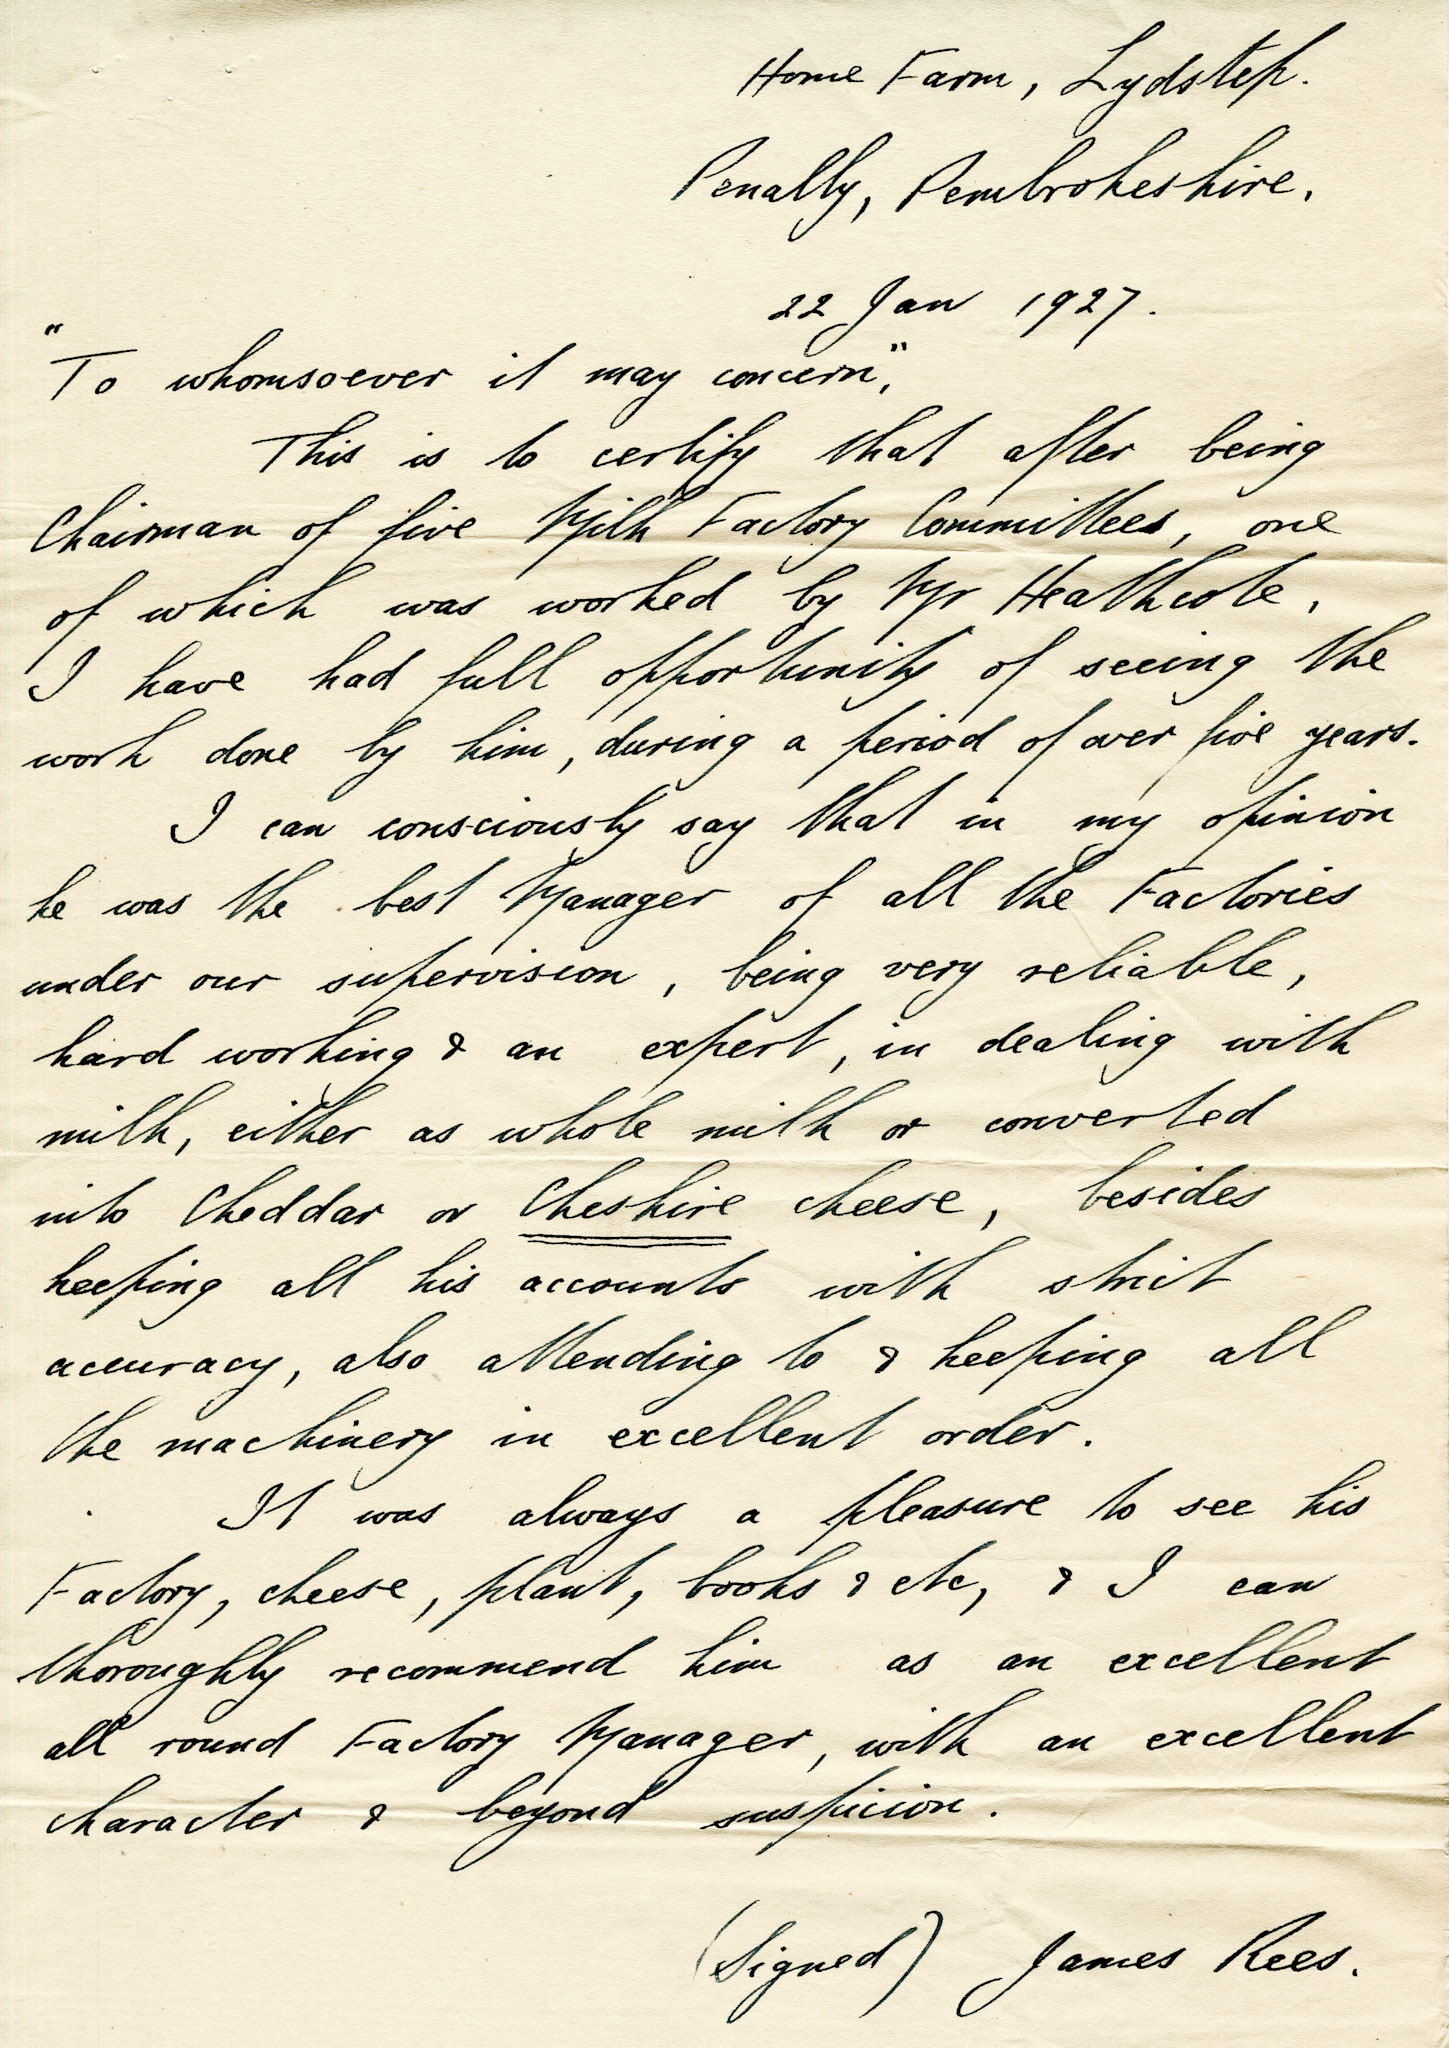 Home Farm, Lydstep.
Penally, Pembrokeshire.
22 Jan 1927.
"To whomsoever it may concern",
This is to certify that after being
Chairman of five Milk Factory Committees, one
of which was worked by Mr Heathcote,
I have had full opportunity of seeing the
work done by him, during a period of over five years.
I can consciously say that in my opinion
he was the best Manager of all the Factories
under our supervision, being very reliable,
hard working & an expert, in dealing with
milk, either as whole milk or converted
into Cheddar or Cheshire cheese, besides
keeping all his accounts with strict
accuracy, also attending to & keeping all
the machinery in excellent order.
It was always a pleasure to see his
Factory, cheese, plant, books & etc, & I can
thoroughly recommend him as an excellent
all round Factory Manager, with an excellent
character & beyond suspicion.
(Signed) James Rees.